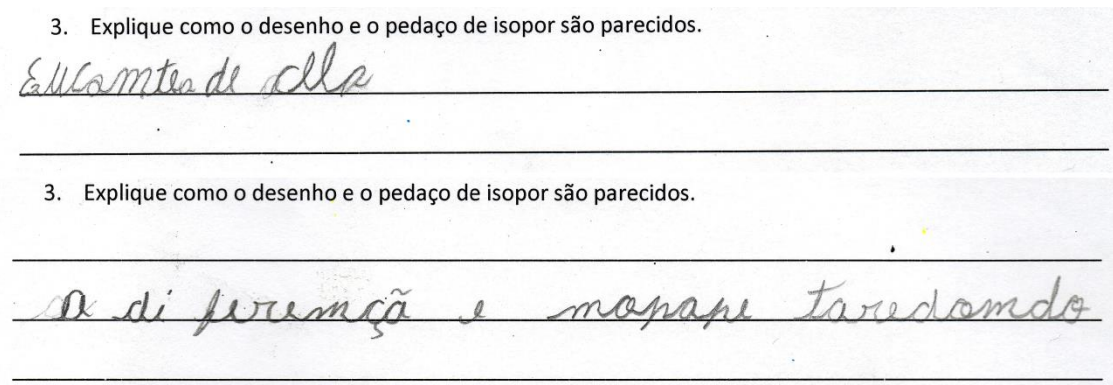 3. Explique como o desenho e o pedaço de isopor são parecidos.
de
3. Explique como o desenho e o pedaço de isopor são parecidos.
a di feremçã e mopape taredomdo